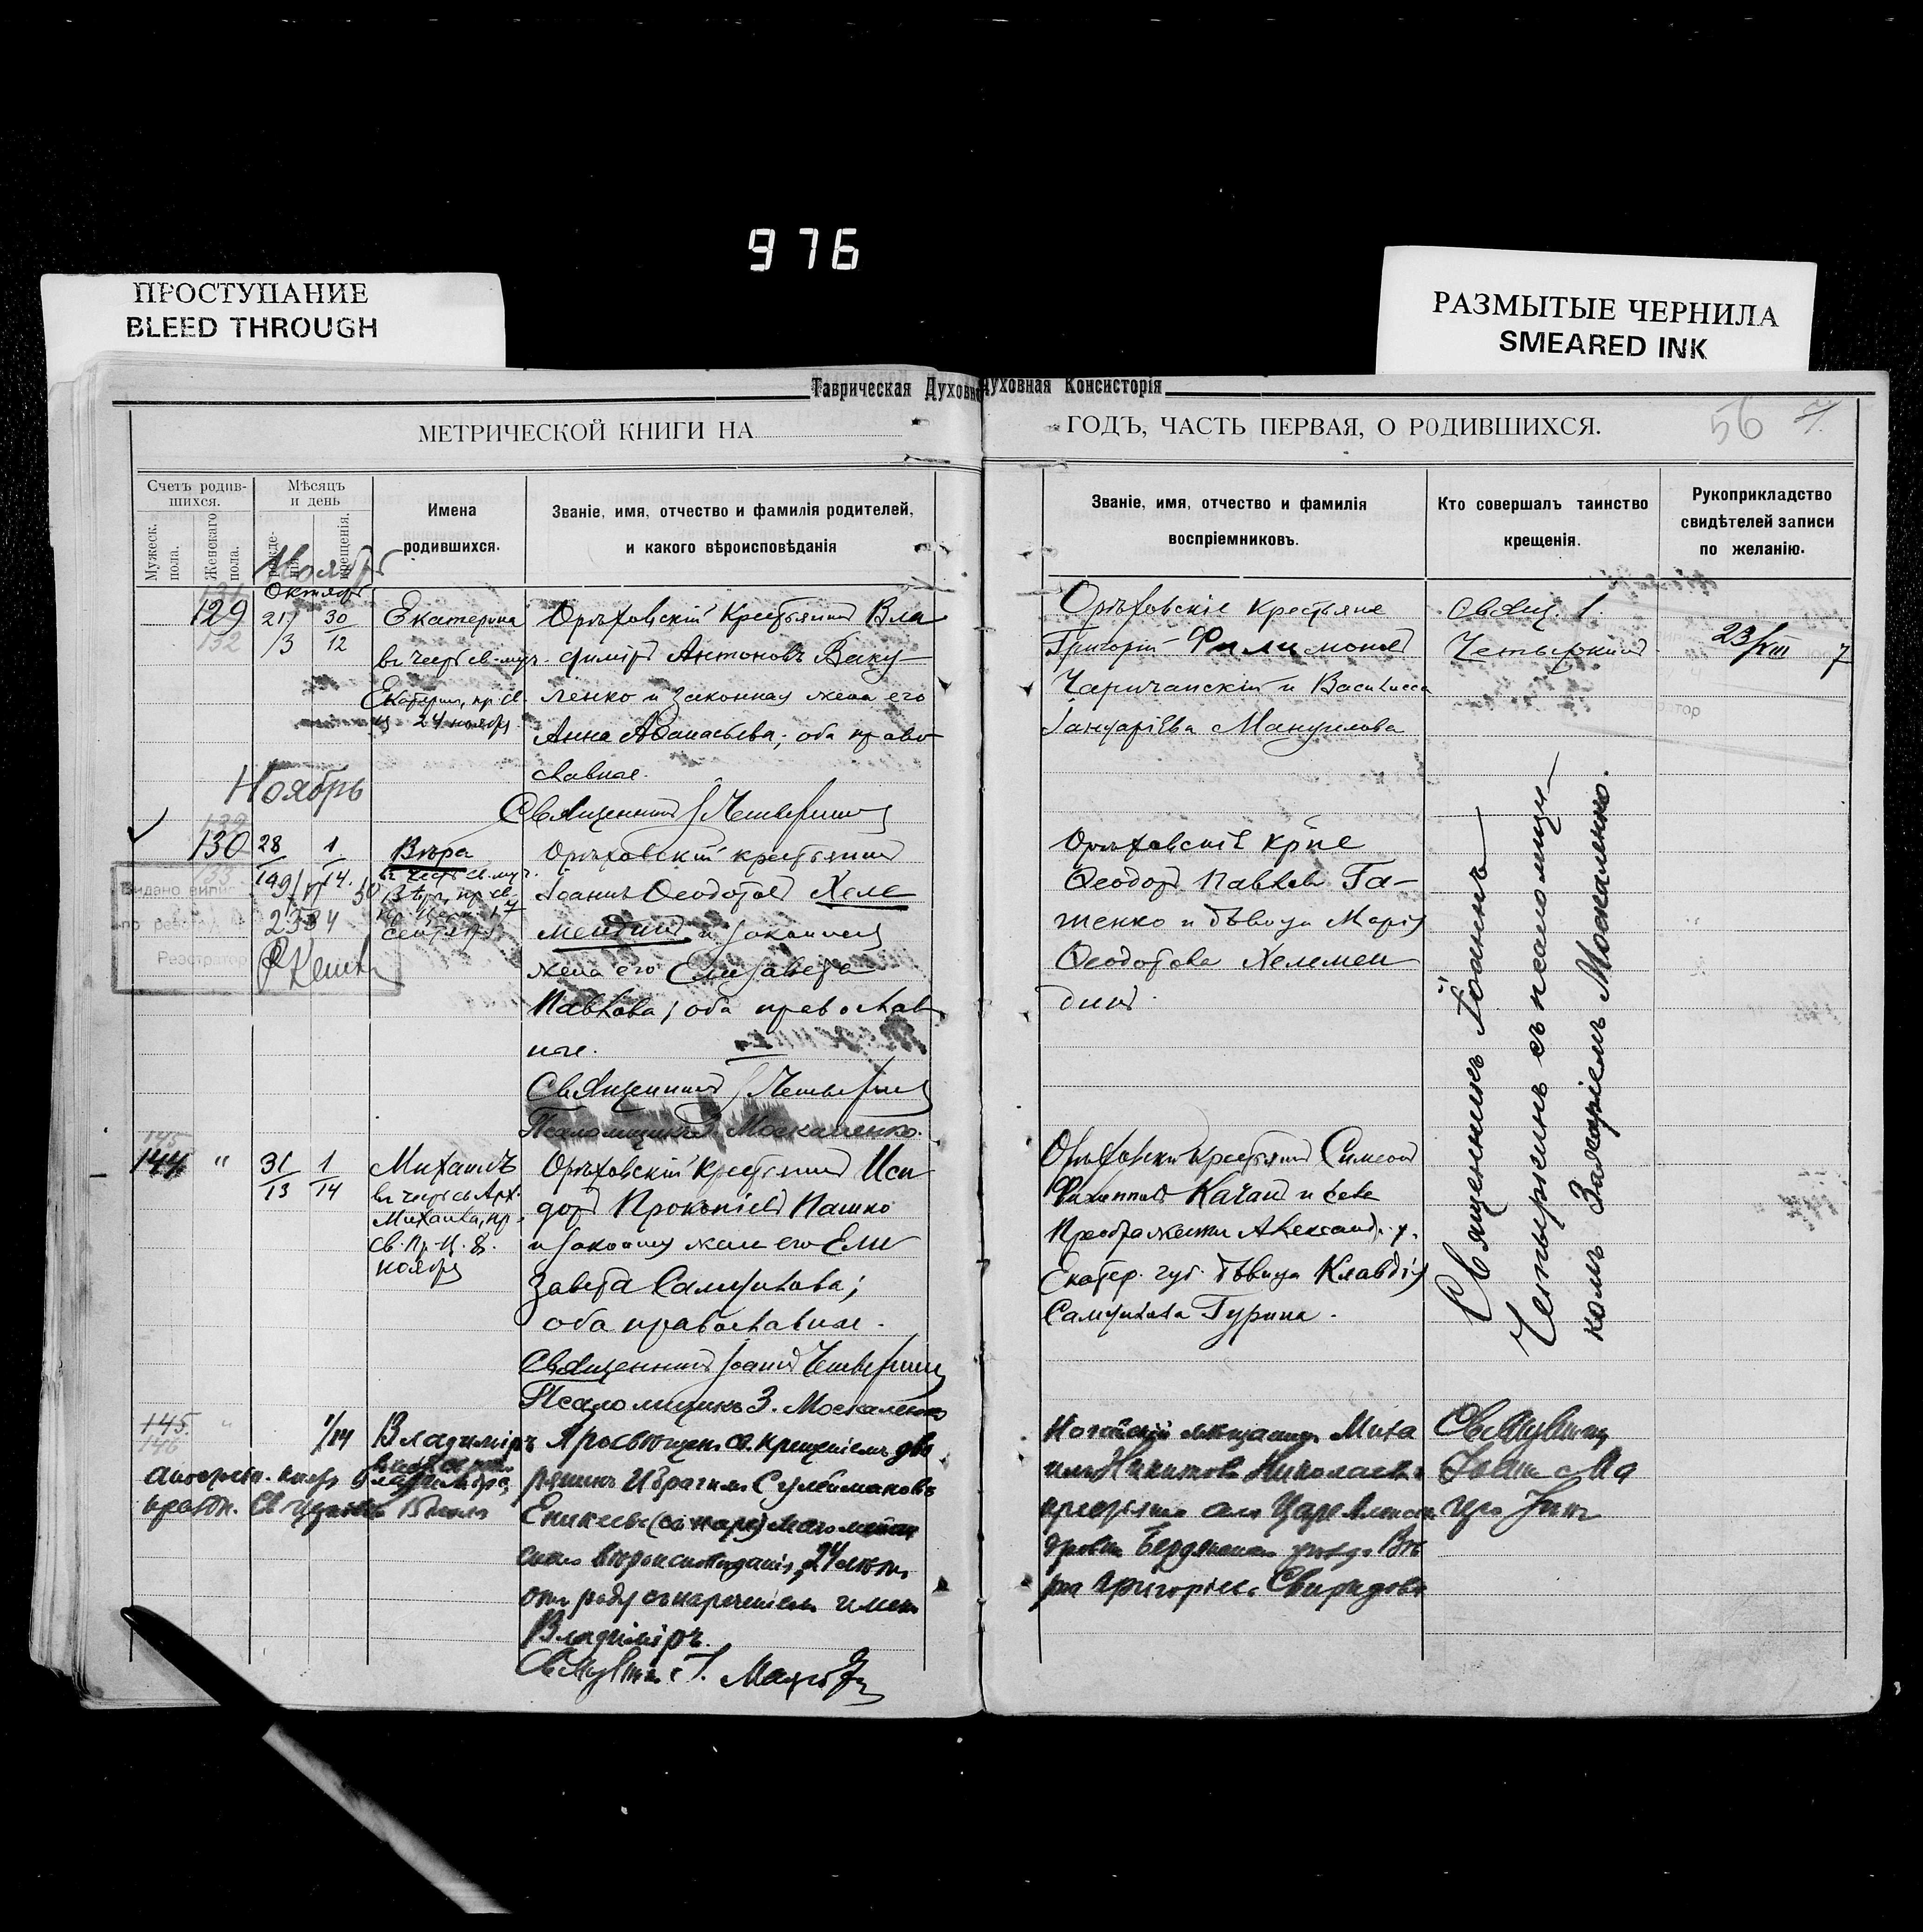 976
ПРОСТУПАНИЕ
BLEED THROUGH
РАЗМЫТЫЕ ЧЕРНИЛА
SMEARED INK
Таврическая Духовн
Духовная Консисторія
МЕТРИЧЕСКОЙ КНИГИ НА
ГОДЪ, ЧАСТЬ ПЕРВАЯ, О РОДИВШИХСЯ.
56
Счетъ родив-
шихся.
Мужеск.
пола.
Женскаго
пола.
Мѣсяцъ
и день
крещенія.
Имена
родившихся.
Званіе, имя, отчество и фамилія родителей,
и какого вѣроисповѣданія
Званіе, имя, отчество и фамилія
воспріемниковъ.
Кто совершалъ таинство
крещенія.
Рукоприкладство
свидѣтелей записи
по желанію.
Октябрь
129
21/3
30/12
Екатерина
въ честь св. муч.
Екатерин, пр. св.
ц 24 ноября
Орѣховскій крестьянинъ Вла
димiръ Антоновъ Баку-
ленко и законная жена его
Анна Аѳанасьева; оба право
славные.
Священникъ І Четыркинъ
Орѣховскіе крестьяне
Григорій Филимоновъ
Чаричанскій и Василисса
Іануаріева Мануилова
Свящ. І.
Четыркинъ
23/VIII
Ноябрь
130
28
1
14.
Вѣра
въ честь св. муч.
Вѣры, пр. св.
17
сентября
2334
Реєстратор
Орѣховскій крестьянинъ
Іоаннъ Ѳеодотовъ Келе
мендинъ и законная
жена его Елизавета
Павлова; оба православ
ные.
Священникъ І Четыркинъ
Псаломщикъ З. Москаленко.
Орѣховскіе кр-не
Ѳеодоръ Павловъ Га-
тенко и дѣвица Марія
Ѳеодотова Келемен
динъ.
Священникъ Іоаннъ
Четыркинъ съ псаломщи-
комъ Захаріемъ Москаленко.
144
"
31/13
1/14
Михаилъ
въ честь св Арх.
Михаила, пр.
св. Пр. Ц. 8.
ноября
Орѣховскій крестьянинъ Иси
доръ Прокопіевъ Пашко
и законная жена его Ели
завета Самуилова;
оба православные.
Священникъ Іоаннъ Четыркинъ
Псаломщикъ З. Москаленко
Орѣховскій крестьянинъ Симеонъ
Филипповъ Качанъ и села
Преображенки Александ. у.
Екатер. губ. дѣвица Клавдія
Самуилова Гурина.
145.
146
1/14
Владиміръ
Просвѣщенъ св. крещеніемъ дво
рянинъ Ибрагимъ Сулеймановъ
Еникеевъ магометан
скаго вѣроисповѣданія, 24 лѣтъ
отъ роду съ нареченіемъ имени
Владиміръ.
Ногайскій мѣщанинъ Миха
илъ Никитовъ Николаевъ
Бердянскаго уѣзда Вѣ
ра Григоріева Свиридова